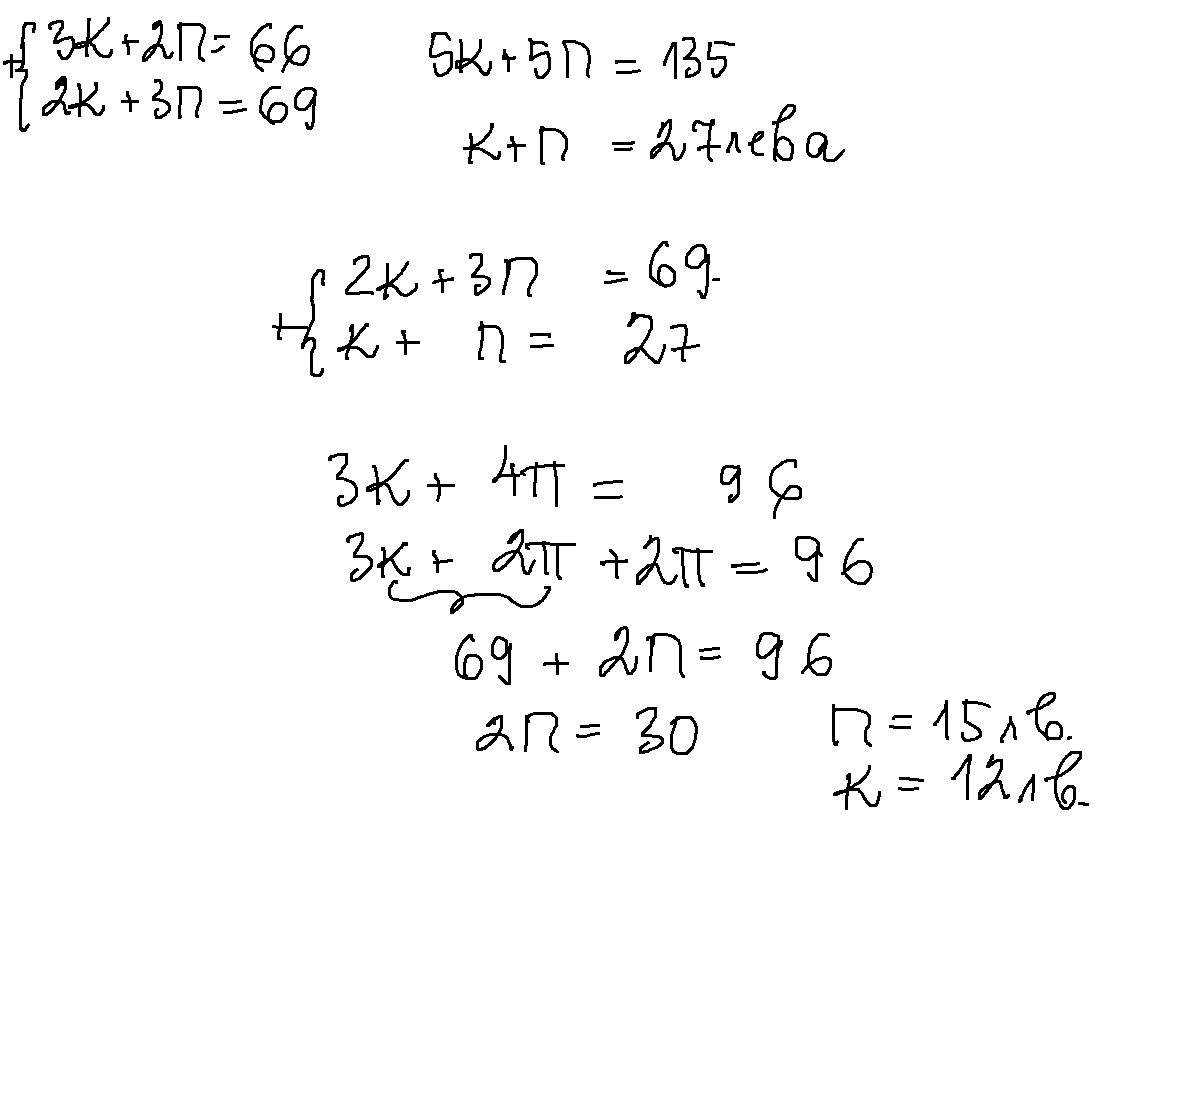 3К+2П=66
2К+3П=69
5К+5П=135
К+П=27лева
2К+3П=69.
К+П=27
3К+4П=96
3К+2П+2П=96
69+2П=96
2П=30
П=15лв.
К=12лв.